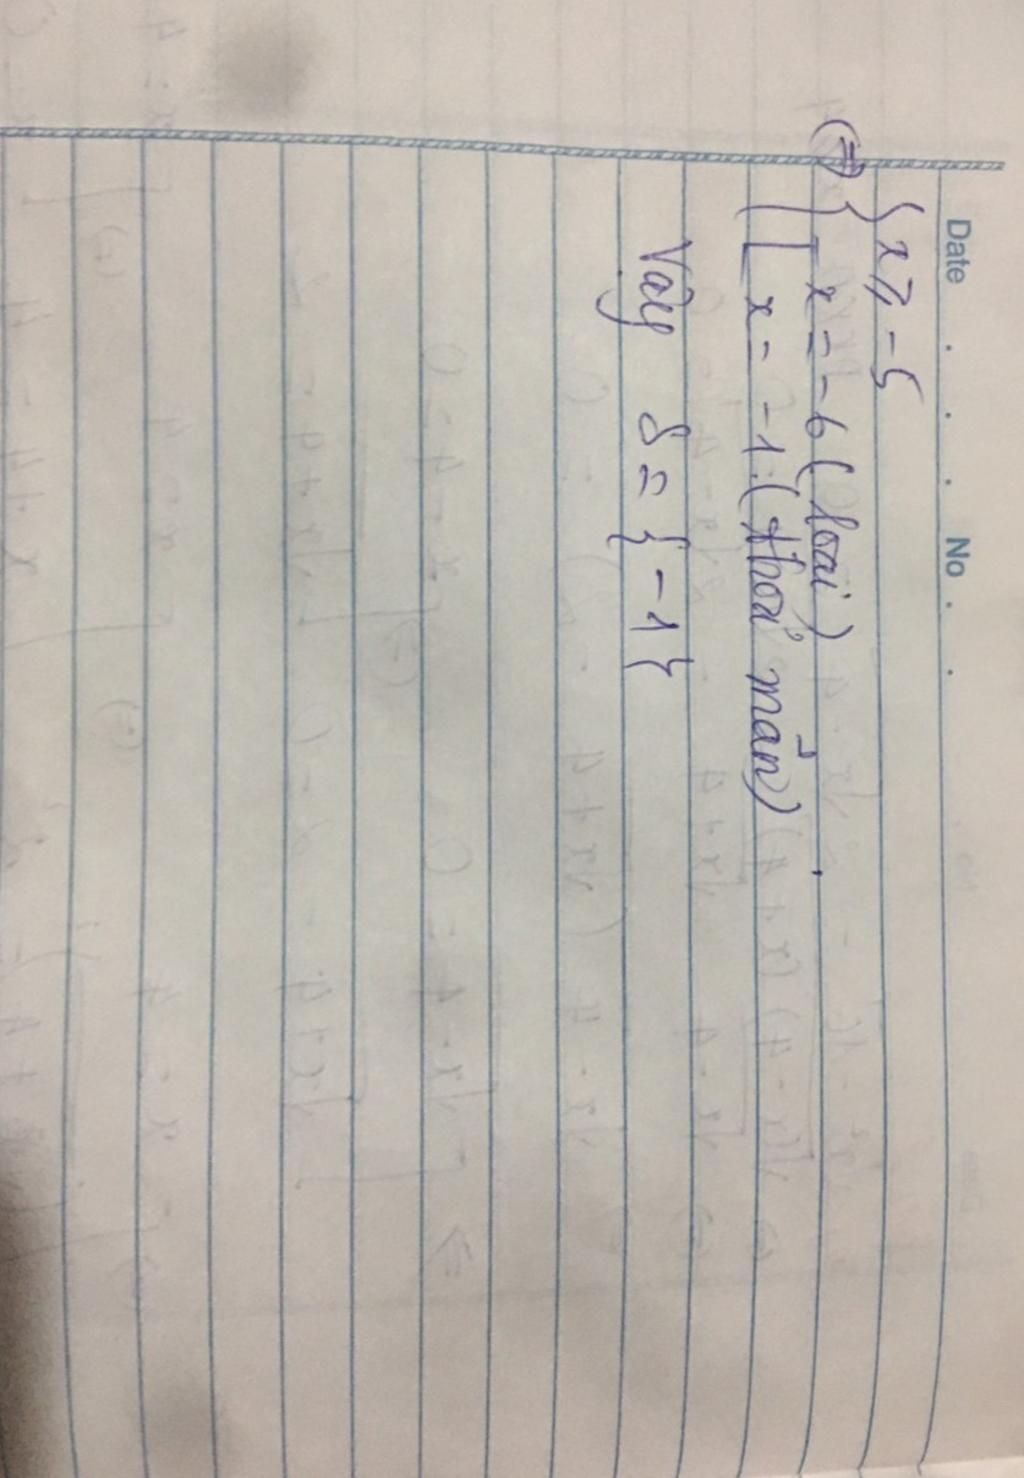 Date . . . No . .
(=) { x ≥ -5
[ x = -6 (loại)
[ x = -1 (thoả mãn)
Vậy S = {-1}